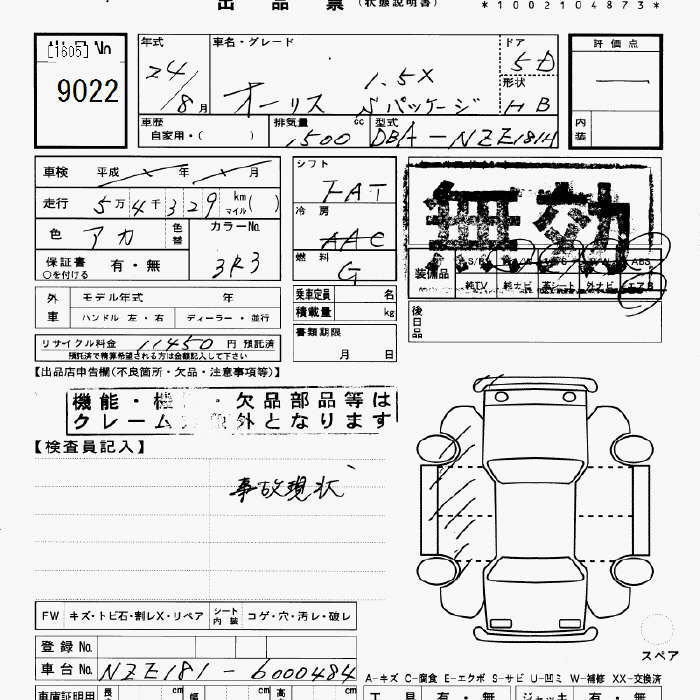 出 品 票 (状態説明書)
*1002104873*
[1605] No
9022
年式
24/8月
車名・グレード
1.5X
オーリス Sパッケージ
ドア
5D
形状
HB
評価点
内装
車歴
自家用・( )
排気量 cc
1500
型式
DBA-NZE181H
車検 平成 年 月
走行 5万4千329 km マイル( )
色 アカ 色替
カラーNo.
3R3
保証書 有・無
○を付ける
シフト
FAT
冷房
AAC
燃料
G
乗車定員 名
積載量 kg
書類期限
月 日
無効
装備品
純TV 純ナビ 革シート 外ナビ エアB
ABS
後日品
外車 モデル年式 年
ハンドル 左・右 ディーラー・並行
リサイクル料金 11450 円 預託済
預託済で精算希望される方は金額記入して下さい
【出品店申告欄(不良箇所・欠品・注意事項等)】
機能・機 ・欠品部品等は
クレーム 外となります
【検査員記入】
事故現状
FW キズ・トビ石・割レX・リペア シート内装 コゲ・穴・汚レ・破レ
登録 No.
車台 No. NZE181-6000484
スペア
A-キズ C-腐食 E-エクボ S-サビ U-凹ミ W-補修 XX-交換済
車庫証明用 長 cm 幅 cm 高 cm
工具 有・無 ジャッキ 有・無